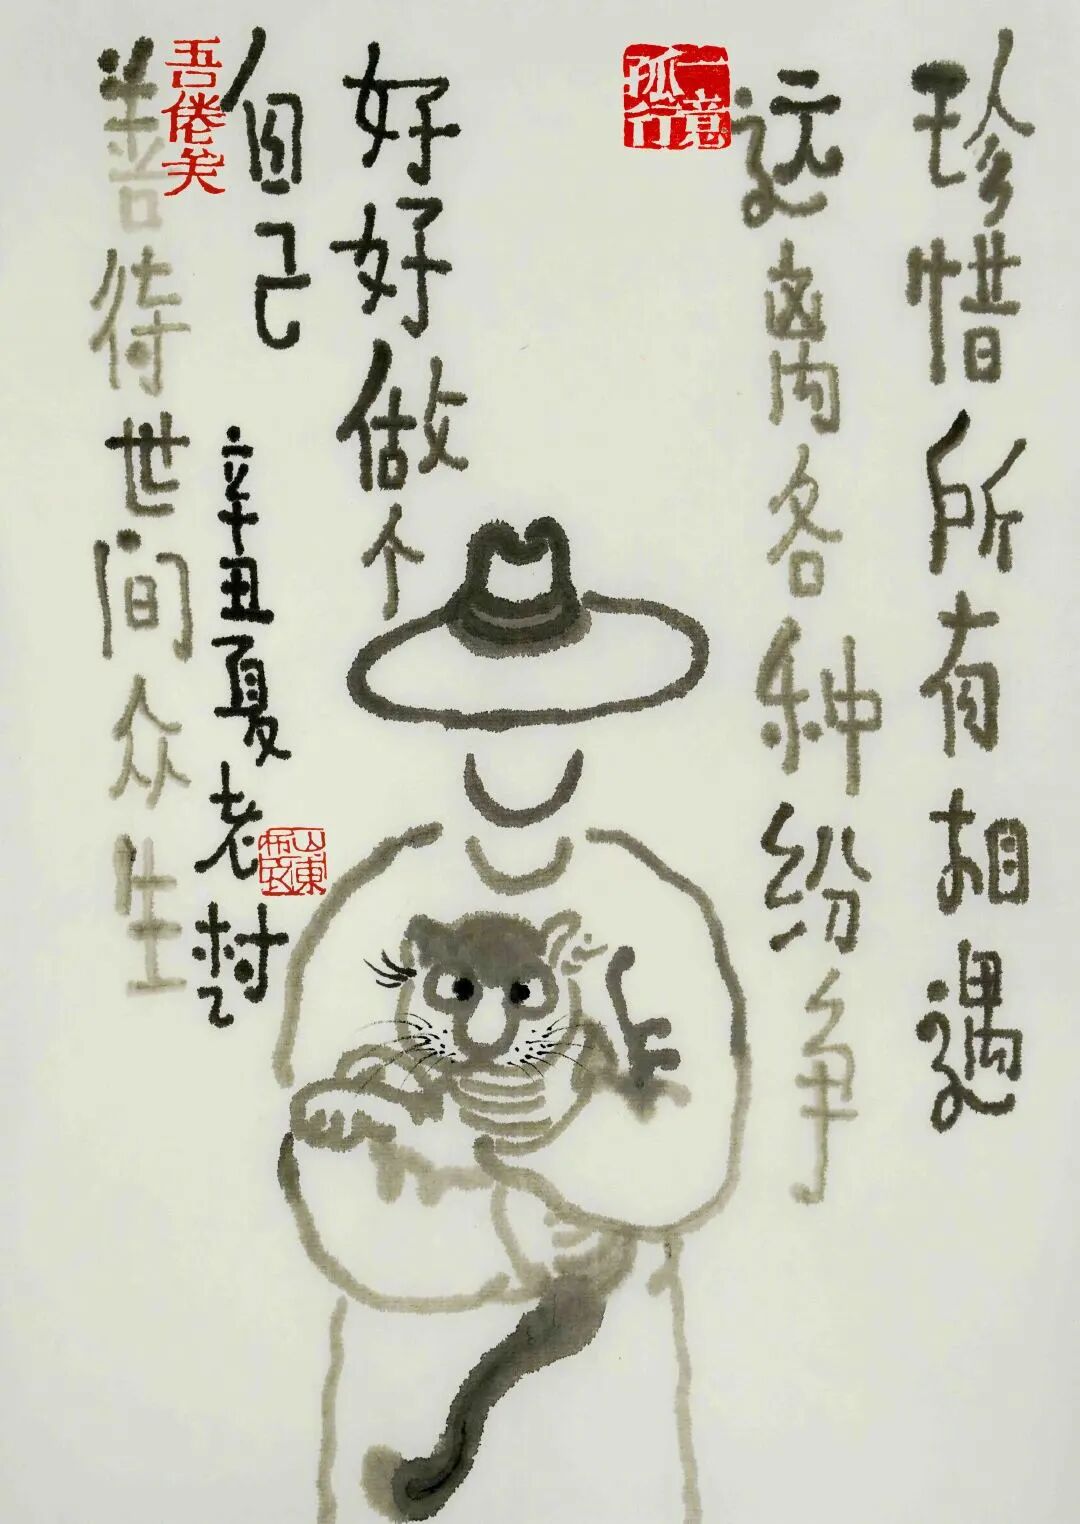 珍惜所有相遇
远离各种纷争
一意孤行
好好做个
自己
善待世间众生
吾倦矣
辛丑夏老村
山东